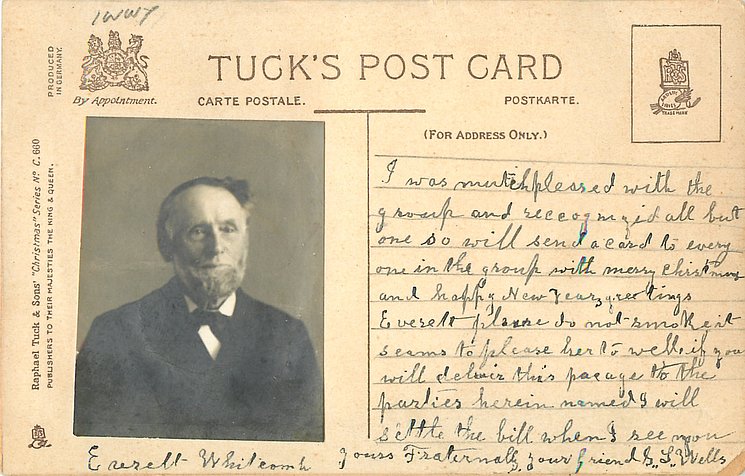 PRODUCED
IN GERMANY.
By Appointment.
TUCK'S POST CARD
CARTE POSTALE.
POSTKARTE.
TRADE MARK
(FOR ADDRESS ONLY.)
Raphael Tuck & Sons' "Christmas" Series No C. 660
PUBLISHERS TO THEIR MAJESTIES THE KING & QUEEN.
I was mutch pleased with the
group and reccognizid all but
one so will send a card to every
one in the group with merry christmas
and happy New Years greetings
Everett please do not smoke it
seams to please her to well, if you
will deliver this pacage to the
parties herein named I will
settle the bill when I see you
Everett Whitcomb yours Fraternally your friend G. L. Wells